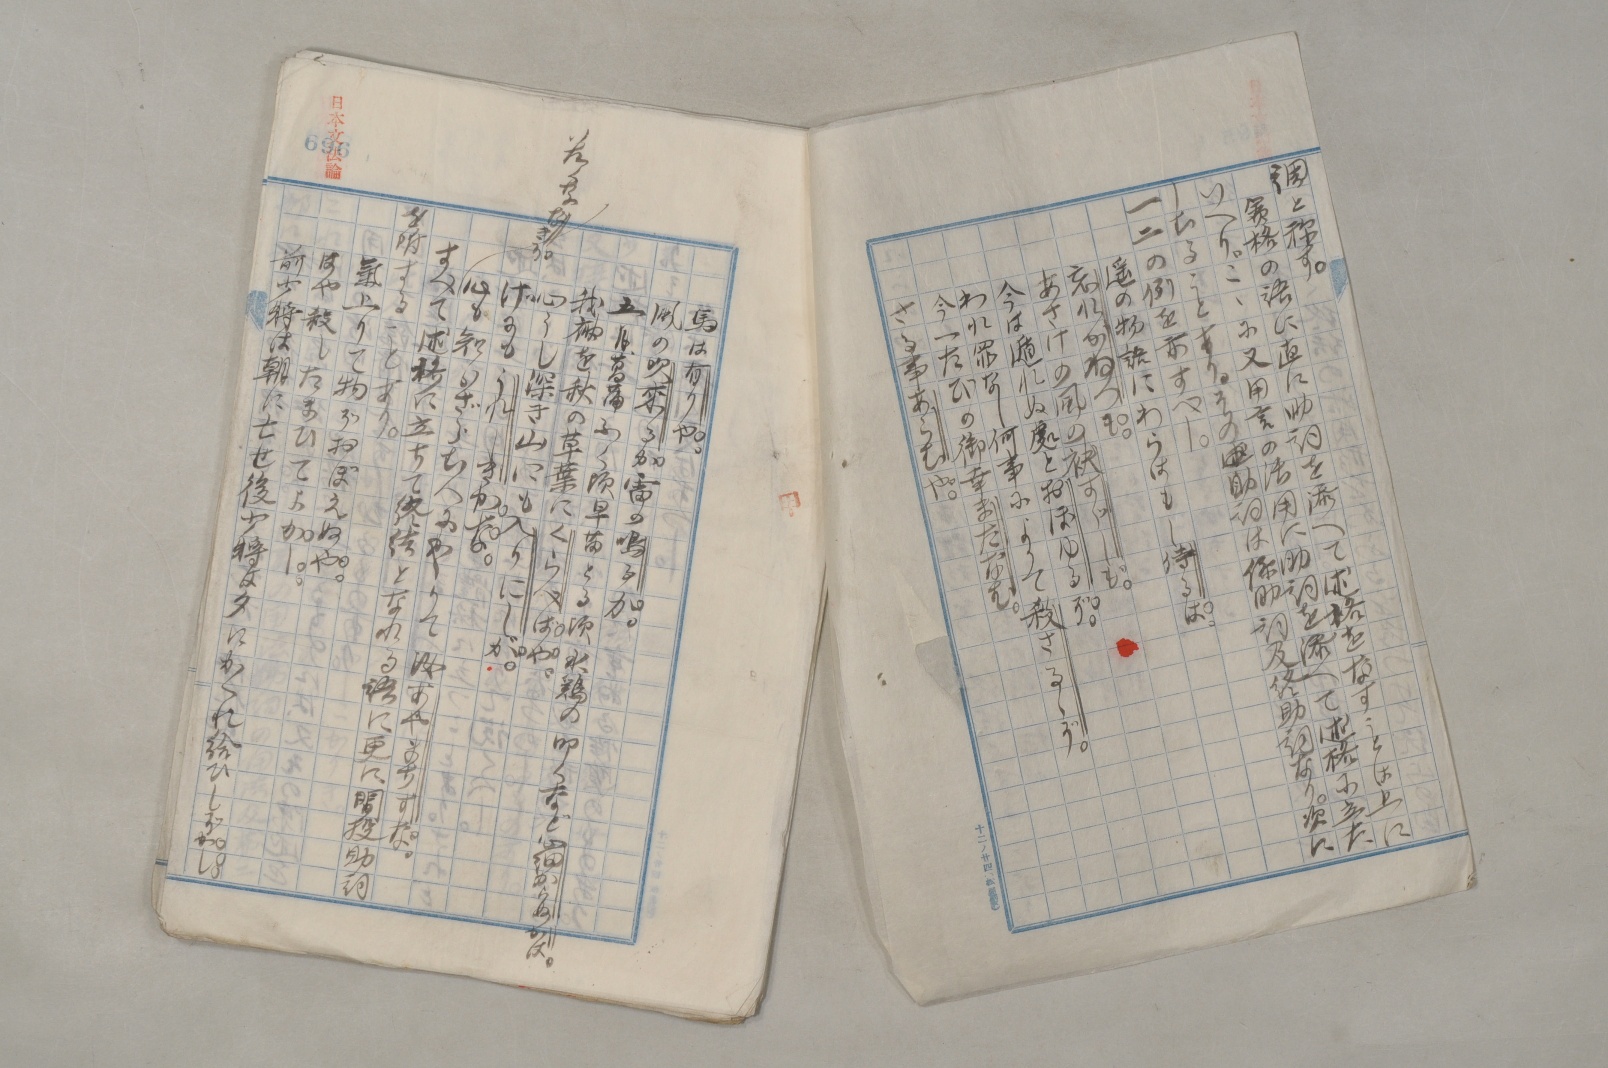 調と称す。
賓格の語に直に助詞を添へて述格をなすことは上に
いへり。こゝに又用言の活用に助詞を添へて述格に立た
しむることあり。その助詞は係助詞及終助詞なり。次に
一二の例を示すべし。
遥の物語にわらはもし侍るは。
忘れがねつも。
あさけの風の袂すゞしも。
今は遁れぬ處とおぼゆるぞ。
われ罪なし何事によりて殺さるゝぞ。
今一たびの御幸またなむ。
さる事あらむや。
日本文法論
696
馬は有りや。
風の吹来るか雷の鳴るか。
五月菖蒲ふく頃早苗とる頃水鶏の叩くなど心細からぬかは。
我袖を秋の草葉にくらべばや。
心うし深き山にも入りにしが。
げにもうれ
心も知らぎ
すべて述格に立ちて終結となれる語に更に間投助詞
を附することあり。
氣上りて物ぞおぼえぬや。
はや殺したまひてよかし。
前少将は朝に亡せ後少将は夕にかくれ給ひしぞかし